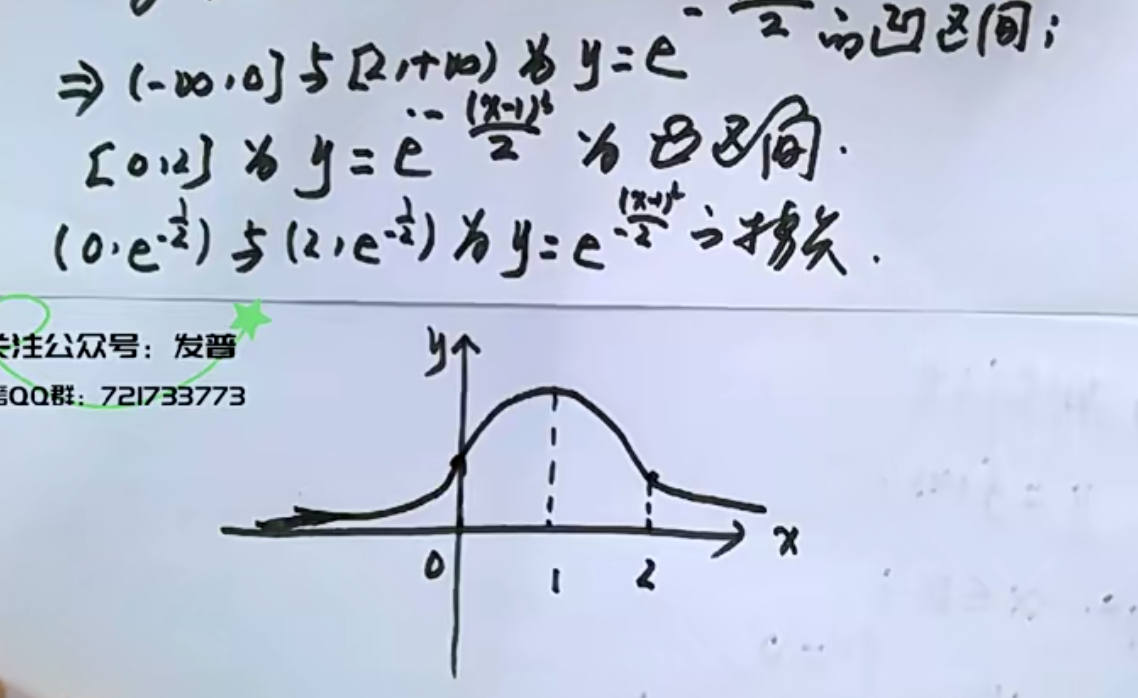 - 2 的凹区间；
⇒ (-∞,0] 与 [2,+∞) 为 y=e
[0,2] 为 y=e^{-\frac{(x-1)^2}{2}} 为凸区间.
(0,e^{-\frac{1}{2}}) 与 (2,e^{-\frac{1}{2}}) 为 y=e^{-\frac{(x-1)^2}{2}} 之拐点.
关注公众号：发普
QQ群：721733773
y
0 1 2 x